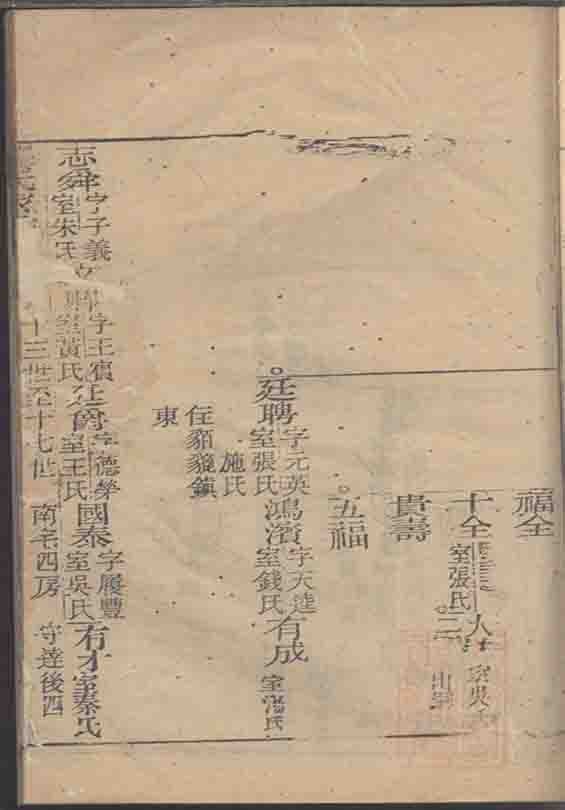 福全
十全
室張氏
貴壽
五福
廷聘 字元英 室張氏 施氏 鴻濱 字天達 室錢氏 有成 室潘氏
住貊貔鎮
東
志舜 字子義 室朱氏 字王賓 室黃氏 廷爵 字德榮 室王氏 國泰 字履豐 室吳氏 有才 室秦氏
十三世至十七世 南宅四房 守達後四